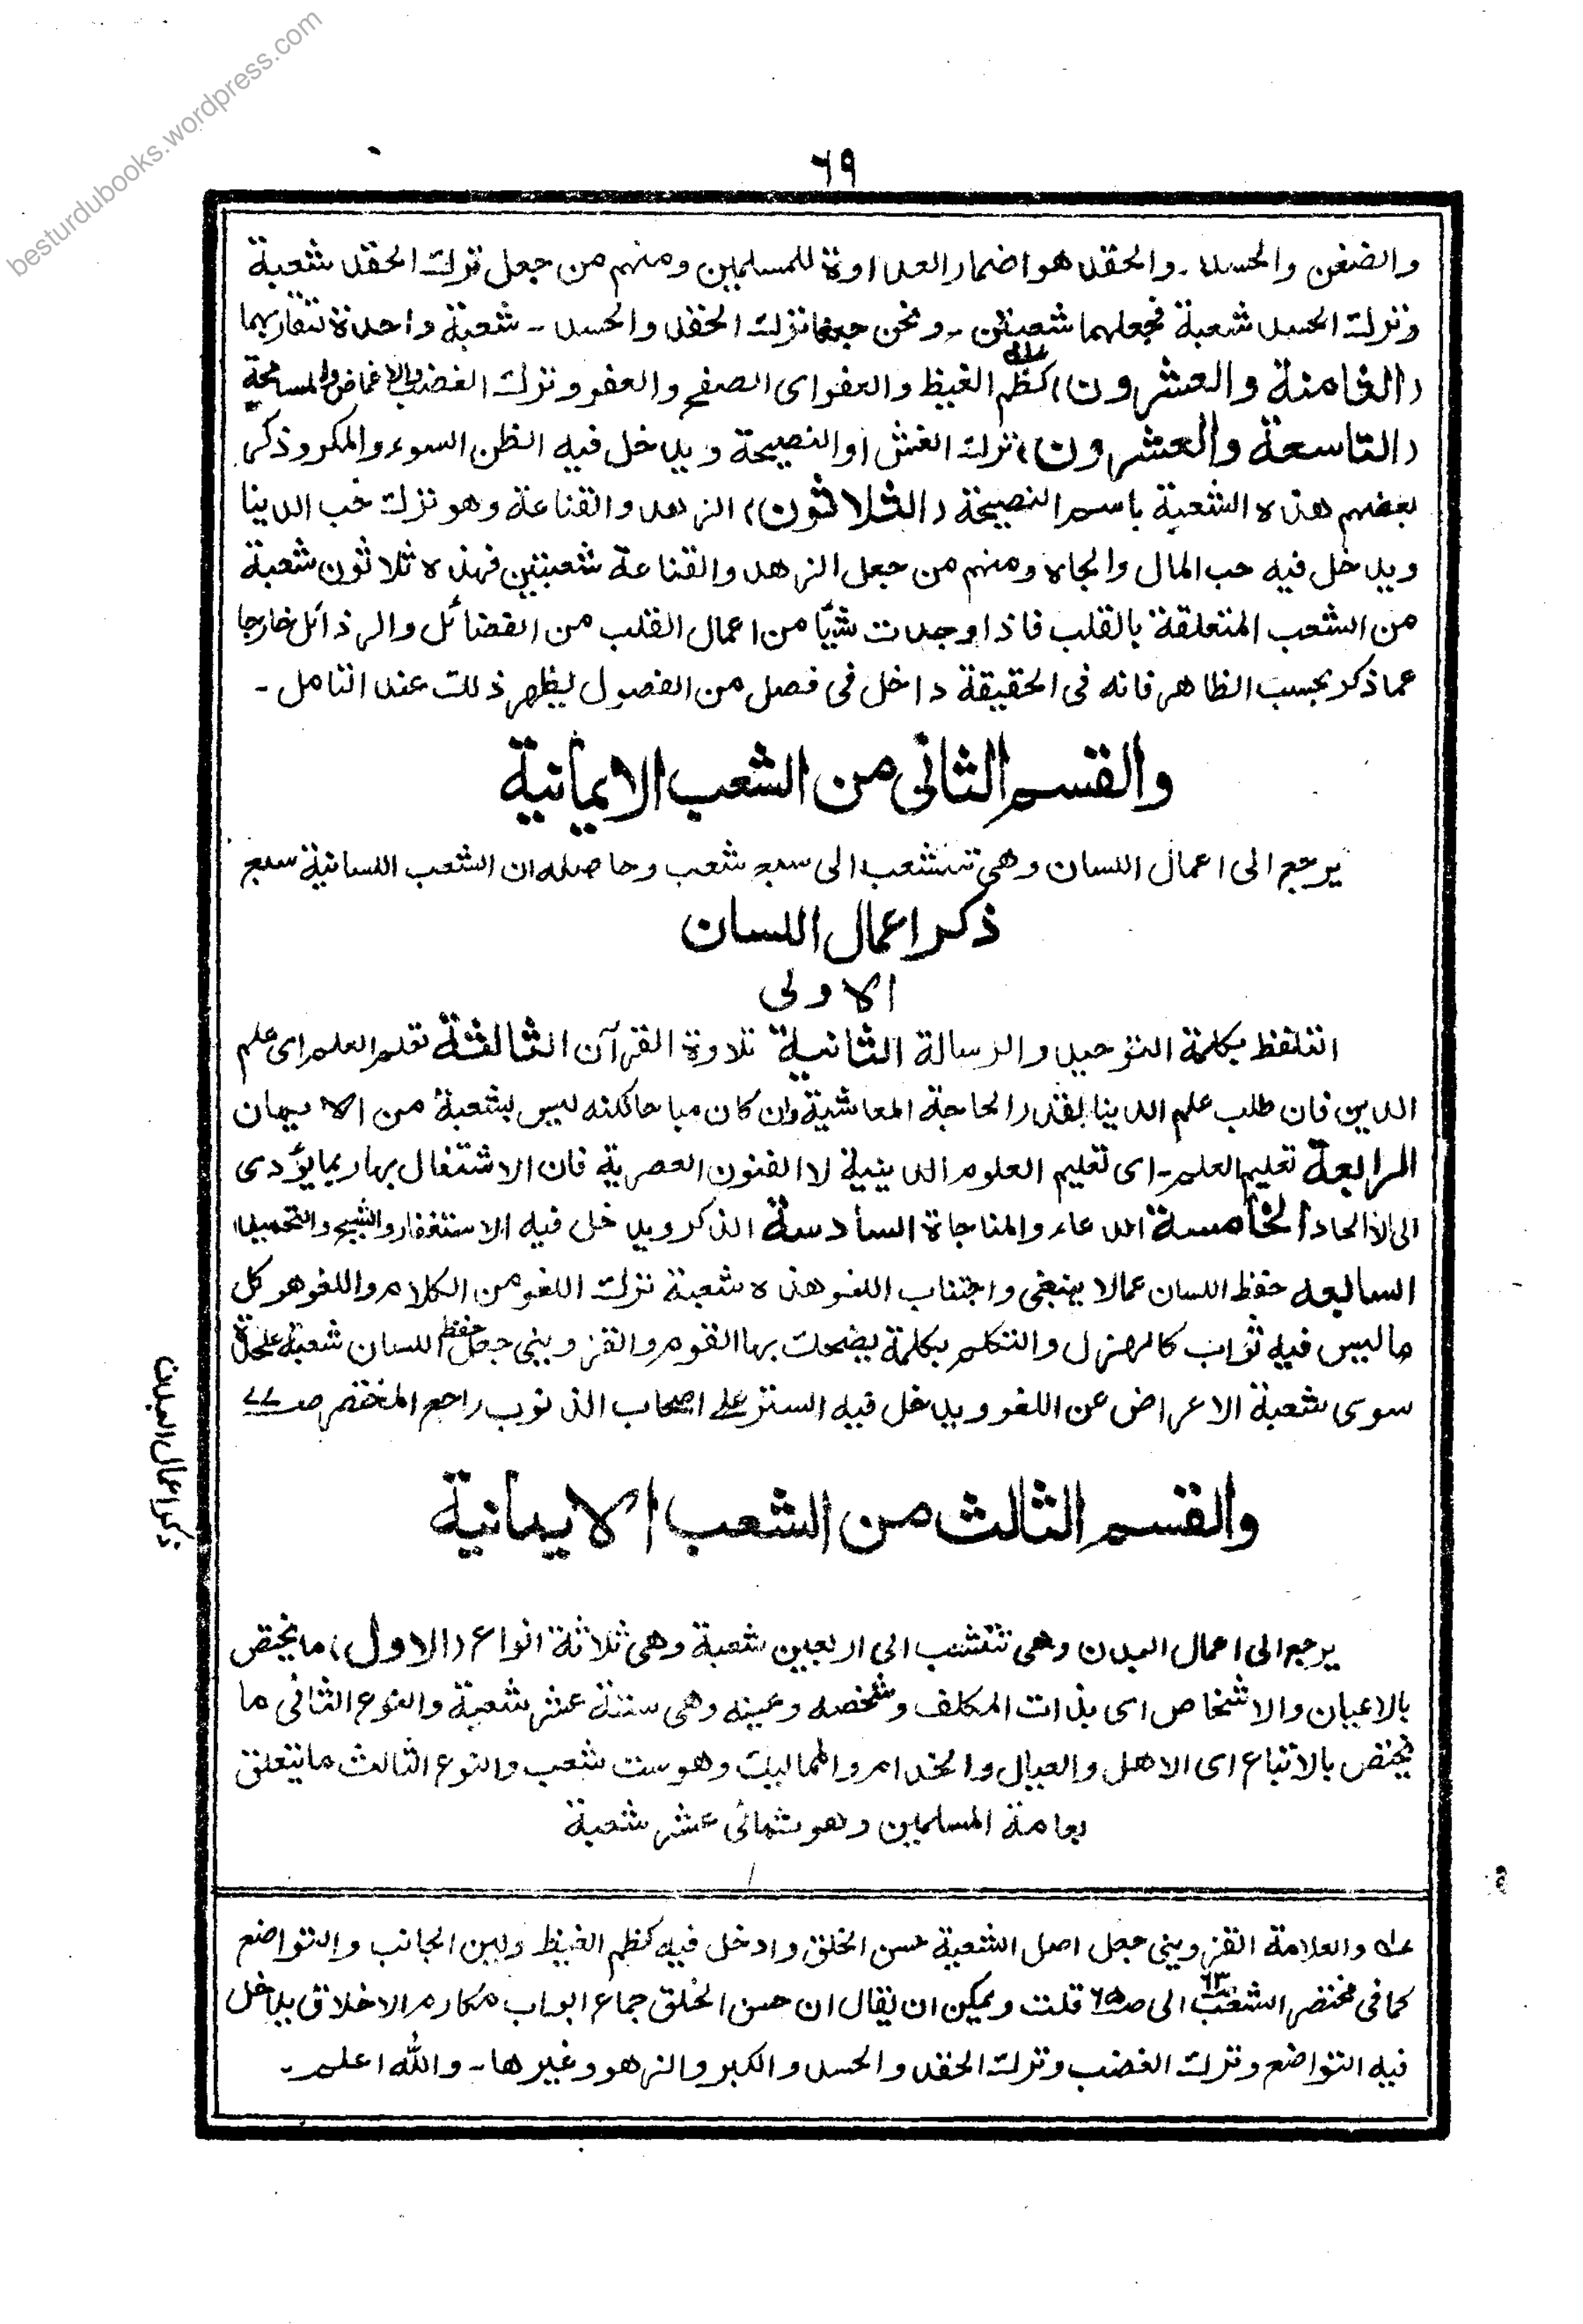 besturdubooks.wordpress.com
٦٩
والضغن والحسد ـ والحقد هو اضمار العداوة للمسلمين ومنهم من جعل ترك الحقد شعبة
وترك الحسد شعبة فجعلهما شعبتين ـ ونحن جعلنا ترك الحقد والحسد ـ شعبة واحدة لتقاربهما
(الثامنة والعشرون) كظم الغيظ والعفو اى الصفح والعفو وترك الغضب والاغماض والمسامحة
(التاسعة والعشرون) ترك الغش او النصيحة ويدخل فيه الظن السوء والمكر وذكر
بعضهم هذه الشعبة باسم النصيحة (الثلاثون) الزهد والقناعة وهو ترك حب الدينا
ويدخل فيه حب المال والجاه ومنهم من جعل الزهد والقناعة شعبتين فهذه ثلاثون شعبة
من الشعب المتعلقة بالقلب فاذا وجدت شيئا من اعمال القلب من الفضائل والرذائل خارجا
عما ذكر بحسب الظاهر فانه فى الحقيقة داخل فى فصل من الفصول ليظهر ذلك عند التامل ـ
والقسم الثانى من الشعب الايمانية
يرجع الى اعمال اللسان وهى تتشعب الى سبع شعب وحاصله ان الشعب اللسانية سبع
ذكر اعمال اللسان
الاولى
التلفظ بكلمة التوحيد والرسالة الثانية تلاوة القرآن الثالثة تعلم العلم اى علم
الدين فان طلب علم الدينا بقدر الحاجة المعاشية وان كان مباحا لكنه ليس بشعبة من الايمان
الرابعة تعليم العلم ـ اى تعليم العلوم الدينية لا الفنون العصرية فان الاشتغال بها ربما يؤدى
الى الالحاد الخامسة الدعاء والمناجاة السادسة الذكر ويدخل فيه الاستغفار والتسبيح والتحميد
السابعه حفظ اللسان عما لا ينبغى واجتناب اللغو هذه شعبة ترك اللغو من الكلام واللغو هو كل
ما ليس فيه ثواب كالهزل والتكلم بكلمة يضحك بها القوم والقزوينى جعل حفظ اللسان شعبة علحدة
سوى شعبة الاعراض عن اللغو ويدخل فيه الستر على اصحاب الذنوب راجع المختصر صـ ٧٧
ذكر اعمال البدن
والقسم الثالث من الشعب الايمانية
يرجع الى اعمال البدن وهى تتشعب الى اربعين شعبة وهى ثلاثة انواع (الاول) ما يختص
بالاعيان والاشخاص اى بذات المكلف وشخصه وعينه وهى ستة عشر شعبة والنوع الثانى ما
يختص بالاتباع اى الاهل والعيال والخدام والمماليك وهو ست شعب والنوع الثالث ما يتعلق
بعامة المسلمين وهو ثمانى عشر شعبة
عـه والعلامة القزوينى جعل اصل الشعبة حسن الخلق وادخل فيه كظم الغيظ ولين الجانب والتواضع
كما فى مختصر الشعب ٦٣ الى صـ ٦٥ قلت ويمكن ان يقال ان حسن الخلق جماع ابواب مكارم الاخلاق يدخل
فيه التواضع وترك الغضب وترك الحقد والحسد والكبر والزهو وغيرها ـ والله اعلم ـ